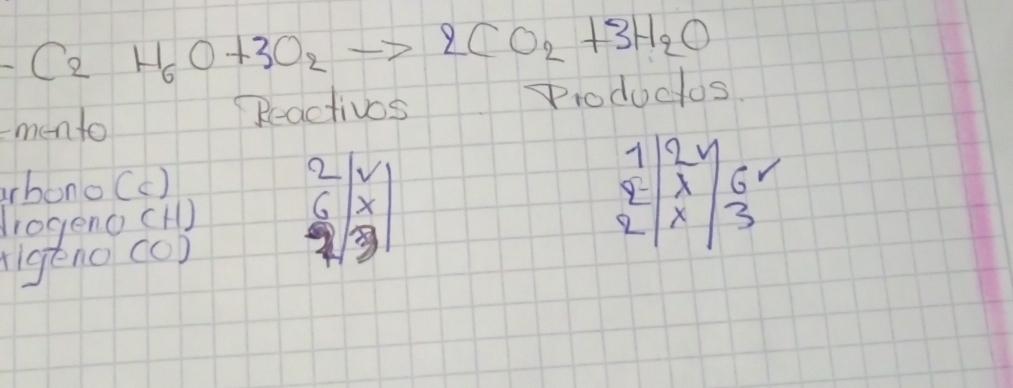 - C2 H6 O + 3O2 → 2CO2 + 3H2O
-mento Reactivos Productos.
arbono (C) 2 | ✓ | 1 | 2 ✓
drogeno (H) 6 | x | 2 | x | 6 ✓
xigeno (O) 3 | 2 | x | 3